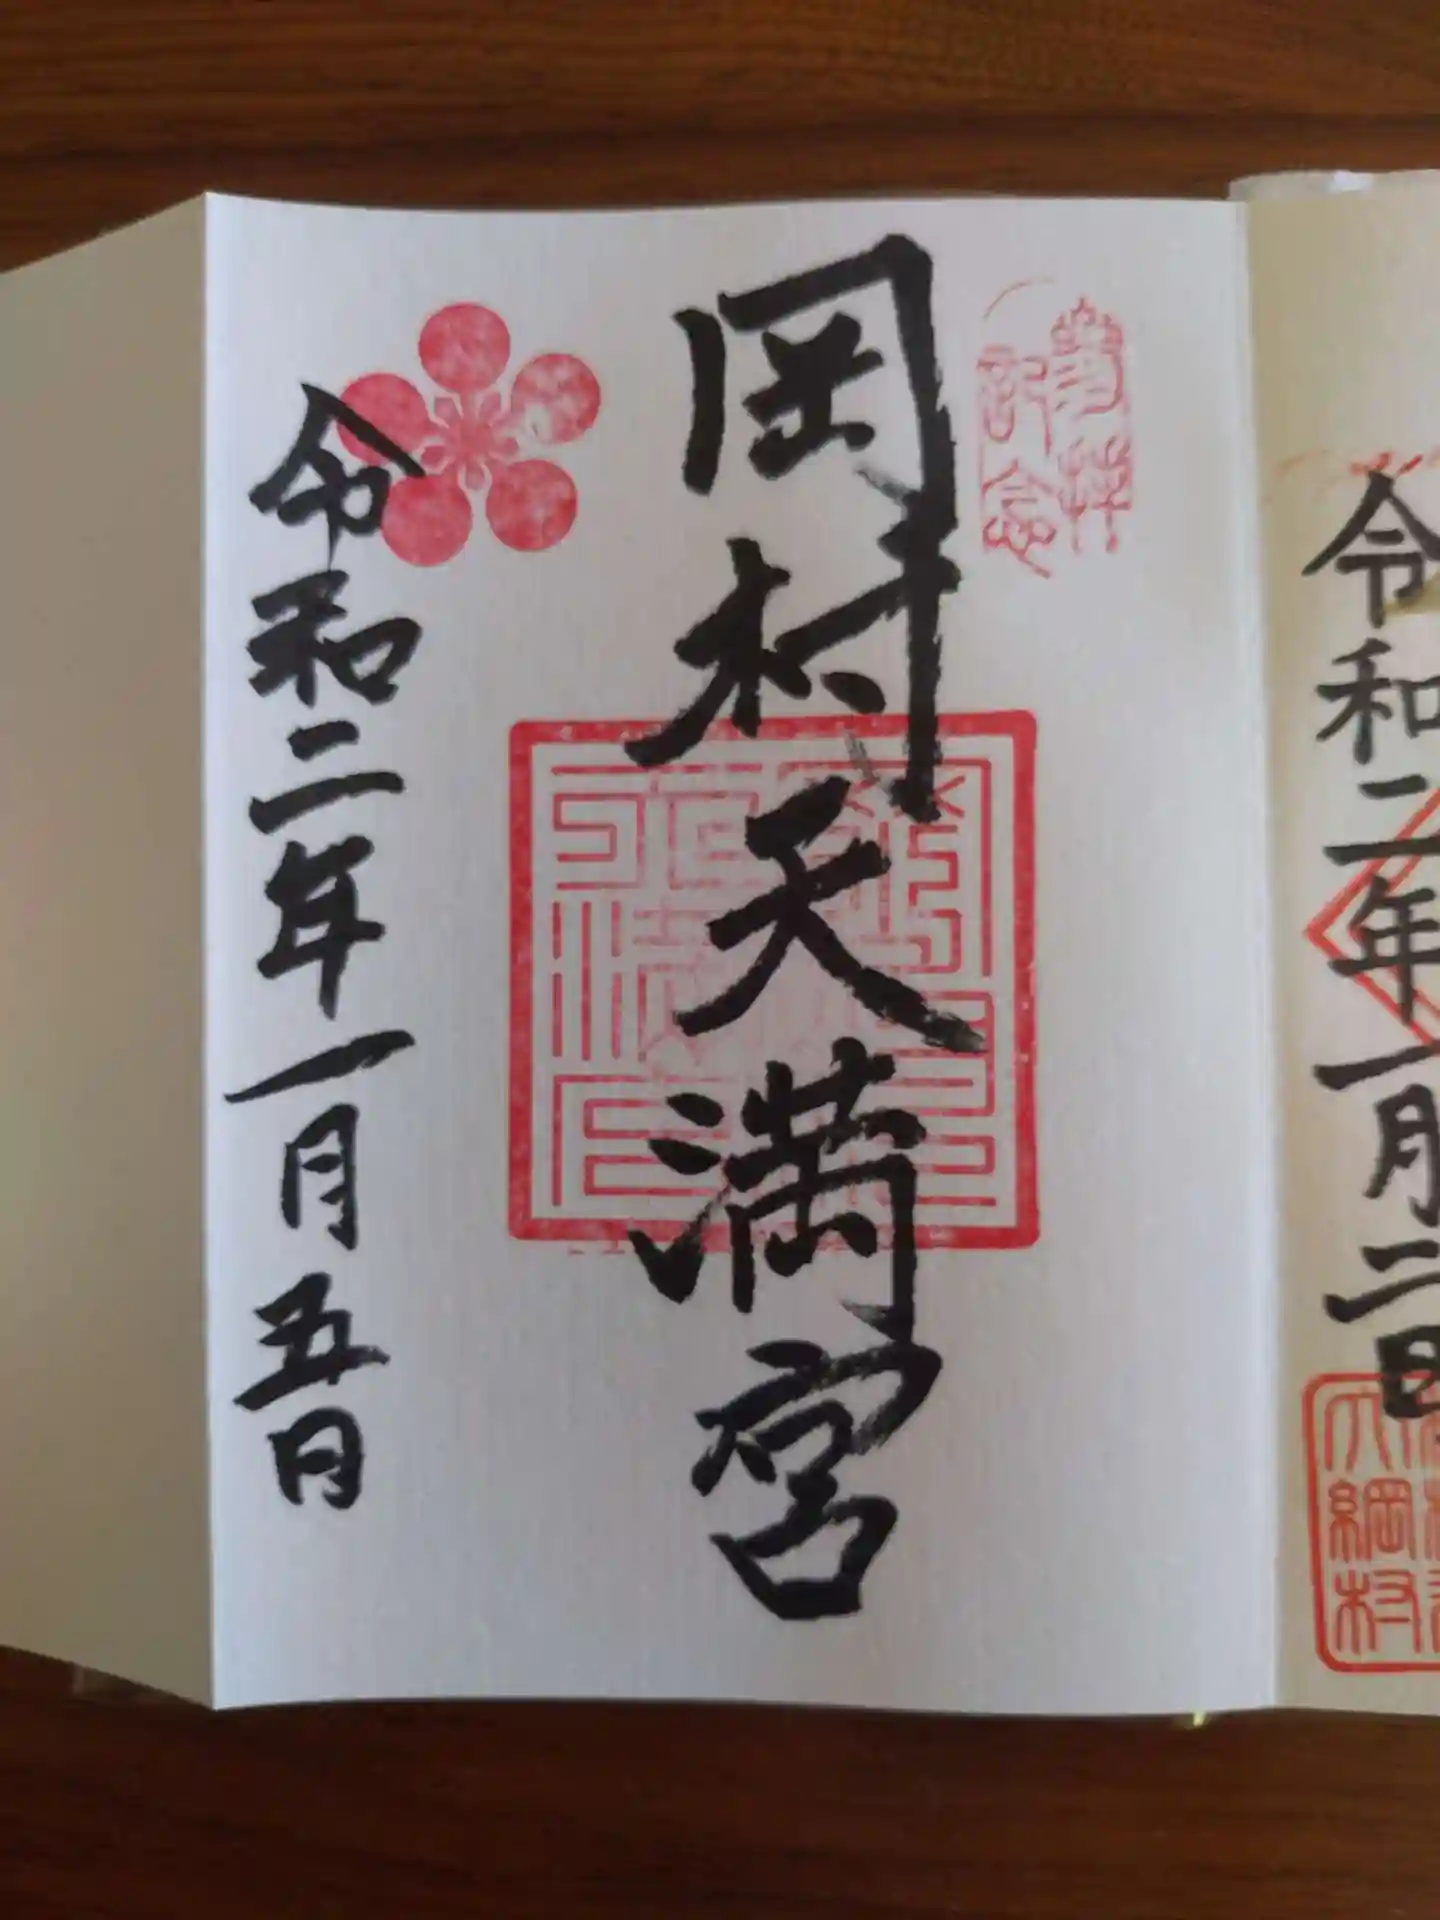 令和二年一月二日
大綱村
參拝
記念
岡村天満宮
令和二年一月五日